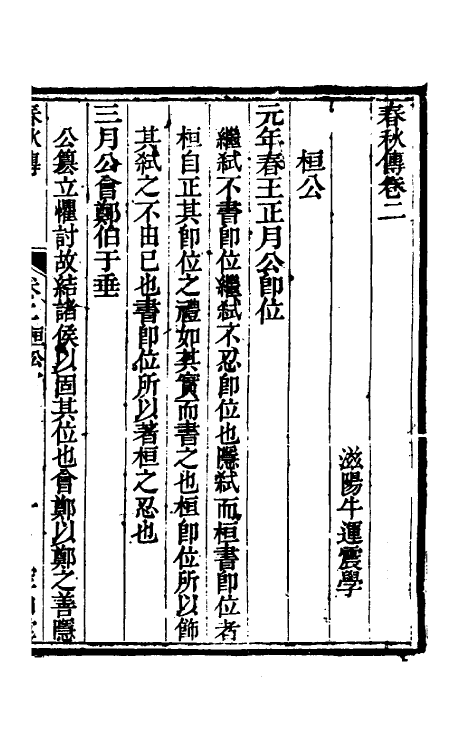 春秋傳卷二
滋陽牛運震學
桓公
元年春王正月公卽位
繼弑不書卽位繼弑不忍卽位也隱弑而桓書卽位者
桓自正其卽位之禮如其實而書之也桓卽位所以飾
其弑之不由已也書卽位所以著桓之忍也
三月公會鄭伯于垂
公簒立懼討故結諸侯以固其位也會鄭以鄭之善隱
春秋傳
卷二桓公